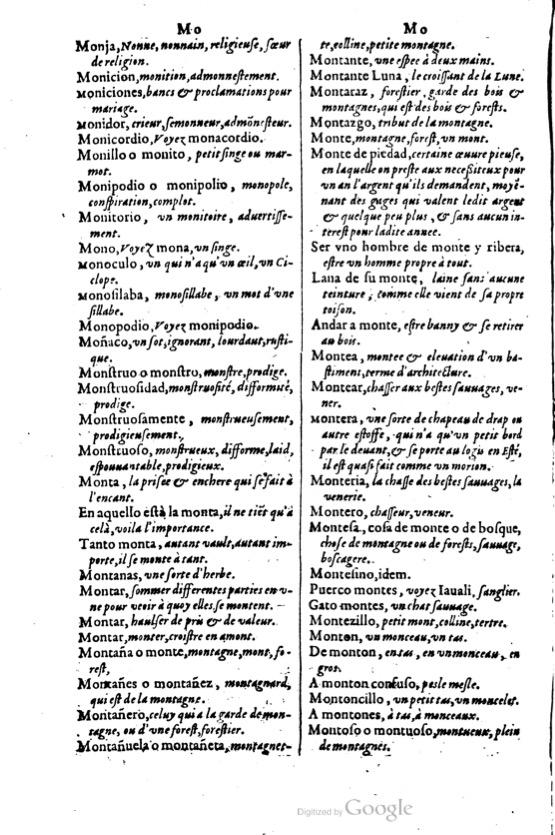 Mo
Monja, Nonne, nonnain, religieuse, sœur
de religion.
Monicion, monition, admonnestement.
Moniciones, bancs & proclamations pour
mariage.
Monidor, crieur, semonneur, admõnesteur.
Monicordio, Voyez monacordio.
Monillo o monito, petit singe ou mar-
mot.
Monipodio o monipolio, monopole,
conspiration, complot.
Monitorio, vn monitoire, aduertisse-
ment.
Mono, Voyez mona, vn singe.
Monoculo, vn qui n'a qu'vn œil, vn Ci-
clope.
Monosilaba, monosillabe, vn mot d'vne
sillabe.
Monopodio, Voyez monipodio.
Moñaco, vn sot, ignorant, lourdaut, rusti-
que.
Monstruo o monstro, monstre, prodige.
Monstruosidad, monstruosité, difformité,
prodige.
Monstruosamente, monstrueusement,
prodigieusement.
Monstruoso, monstrueux, difforme, laid,
espouuantable, prodigieux.
Monta, la prisée & enchere qui se fait à
l'encant.
En aquello està la monta, il ne tiẽt qu'à
celà, voila l'importance.
Tanto monta, autant vault, autant im-
porte, il se monte à tant.
Montanas, vne sorte d'herbe.
Montar, sommer differentes parties en v-
ne pour veoir à quoy elles se montent.
Montar, haulser de pris & de valeur.
Montar, monter, croistre en amont.
Montaña o monte, montagne, mont, fo-
rest,
Montañes o montañez, montagnard,
qui est de la montagne.
Montañero, celuy qui a la garde de mon-
tagne, ou d'vne forest, forestier.
Montañuela o montañeta, montagnet-
Mo
te, colline, petite montagne.
Montante, vne espee à deux mains.
Montante Luna, le croissant de la Lune.
Montaraz, forestier, garde des bois &
montagnes, qui est des bois & forests.
Montazgo, tribut de la montagne.
Monte, montagne, forest, vn mont.
Monte de piedad, certaine œuure pieuse,
en laquelle on preste aux necessiteux pour
vn an l'argent qu'ils demandent, moyẽ-
nant des gages qui valent ledit argent
& quelque peu plus, & sans aucun in-
terest pour ladite annee.
Ser vno hombre de monte y ribera,
estre vn homme propre à tout.
Lana de su monte, laine sans aucune
teinture, comme elle vient de sa propre
toison.
Andar a monte, estre banny & se retirer
au bois.
Montea, montee & eleuation d'vn ba-
stiment, terme d'architecture.
Montear, chasser aux bestes sauuages, ve-
ner.
Montera, vne sorte de chapeau de drap ou
autre estoffe, qui n'a qu'vn petit bord
par le deuant, & se porte au logis en Esté,
il est quasi fait comme vn morion.
Monteria, la chasse des bestes sauuages, la
venerie.
Montero, chasseur, veneur.
Montesa, cosa de monte o de bosque,
chose de montagne ou de forests, sauuage,
boscagere.
Montesino, idem.
Puerco montes, voyez Iauali, sanglier.
Gato montes, vn chat sauuage.
Montezillo, petit mont, colline, tertre.
Monton, vn monceau, vn tas.
De monton, en tas, en vn monceau, en
gros.
A monton confuso, pesle mesle.
Montoncillo, vn petit tas, vn moncelet.
A montones, à tas, à monceaux.
Montoso o montuoso, montueux, plein
de montagnes.
Digitized by Google